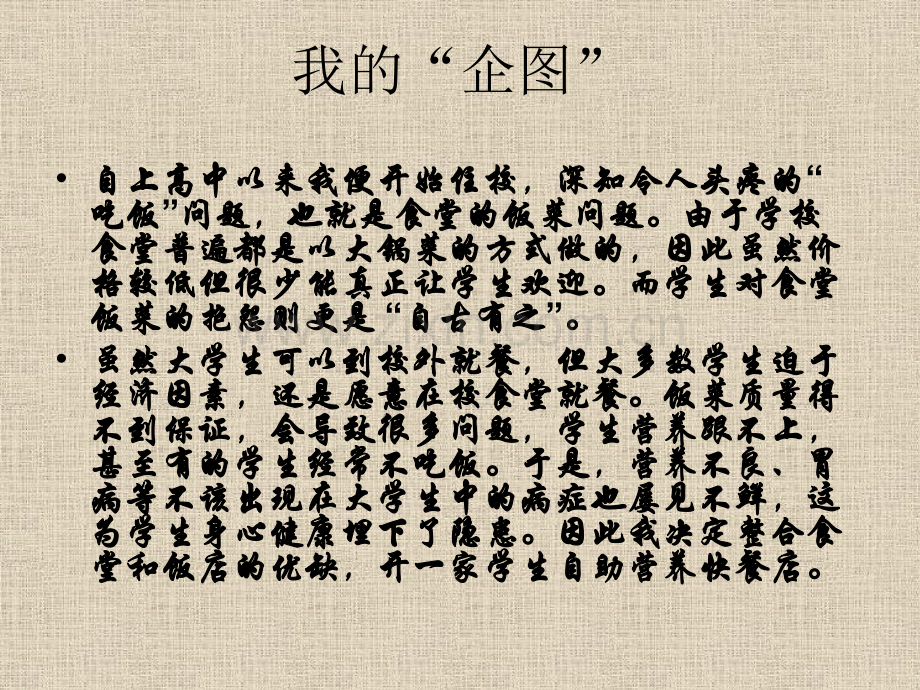 我的“企图”
• 自上高中以来我便开始住校，深知令人头疼的“
吃饭”问题，也就是食堂的饭菜问题。由于学校
食堂普遍都是以大锅菜的方式做的，因此虽然价
格较低但很少能真正让学生欢迎。而学生对食堂
饭菜的抱怨则更是“自古有之”。
• 虽然大学生可以到校外就餐，但大多数学生迫于
经济因素，还是愿意在校食堂就餐。饭菜质量得
不到保证，会导致很多问题，学生营养跟不上，
甚至有的学生经常不吃饭。于是，营养不良、胃
病等不该出现在大学生中的病症也屡见不鲜，这
为学生身心健康埋下了隐患。因此我决定整合食
堂和饭店的优缺，开一家学生自助营养快餐店。